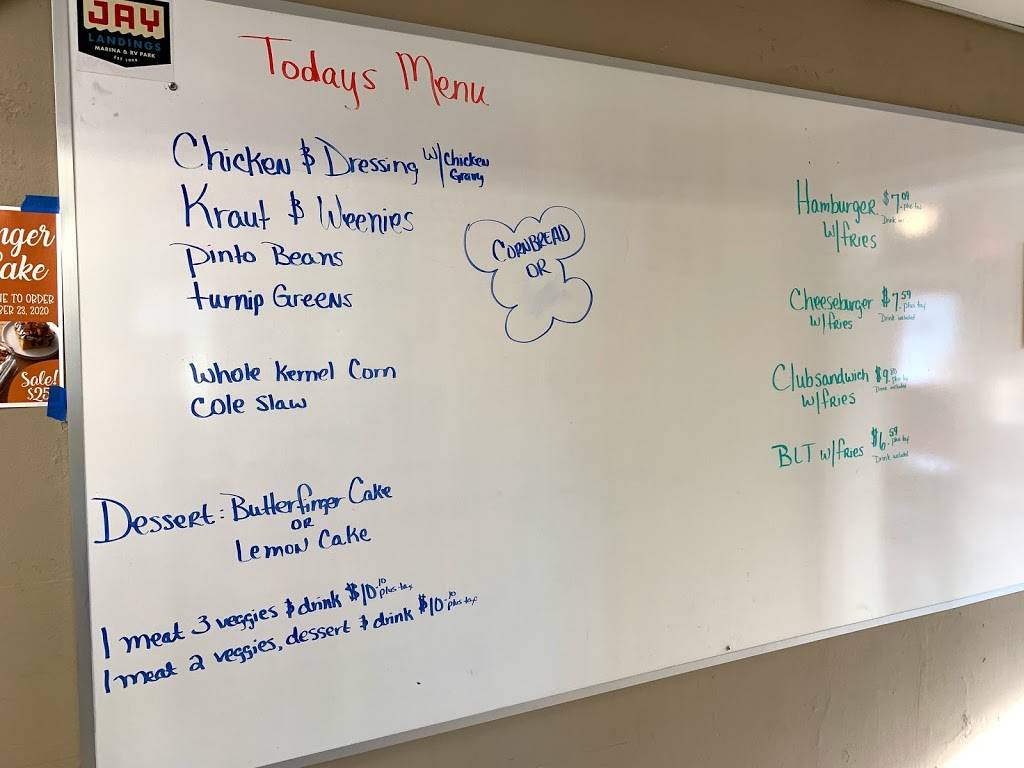 JAY
LANDINGS
MARINA & RV PARK
Todays Menu
Chicken & Dressing w/chicken
Gravy
Kraut & Weenies
Pinto Beans
turnip Greens
CORNBREAD
OR
Whole Kernel Corn
Cole Slaw
Dessert: Butterfinger Cake
OR
Lemon Cake
1 meat 3 veggies & drink $10.10 plus tax
1 meat 2 veggies, dessert & drink $10.10 plus tax
Hamburger $7.09 plus tax
Drink
w/fries
Cheeseburger $7.59 plus tax
w/fries Drink included
Clubsandwich $9. plus tax
w/fries Drink included
BLT w/fries $6.59 plus tax
Drink included
nger
ake
E TO ORDER
BER 23, 2020
Sale!
$25